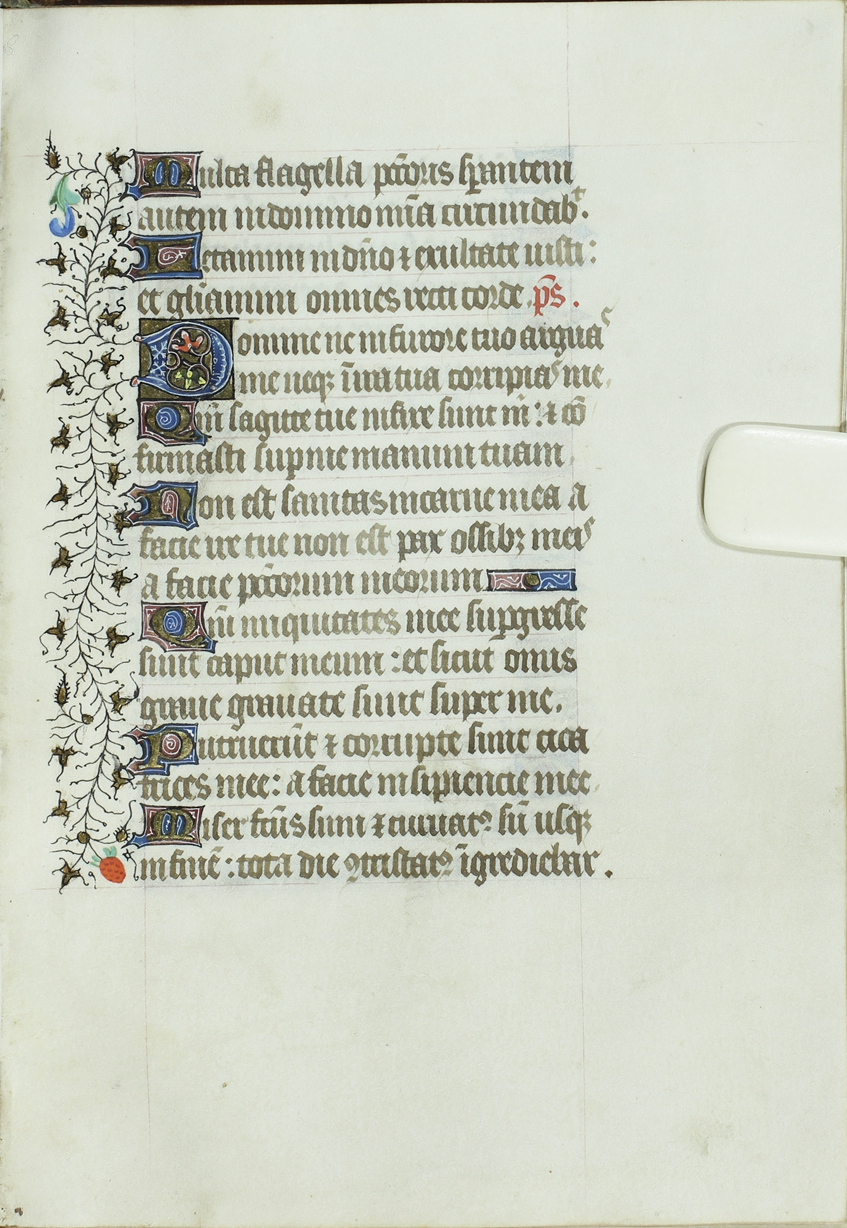 Multa flagella pctoris spantem
autem in domino mia circundabt.
Letamini in dno ⁊ exultate iusti:
et gliamini omnes recti corde. ps.
Domine ne in furore tuo arguas
me neqꝫ ī ira tua corripias me.
Qm̄ sagitte tue infixe sunt m̄: ⁊ cō
firmasti sup me manum tuam.
Non est sanitas in carne mea a
facie ire tue non est pax ossibꝫ meis
a facie pctorum meorum
Qm̄ iniquitates mee supgresse
sunt caput meum: et sicut onus
graue grauate sunt super me.
Putruerūt ⁊ corrupte sunt cica
trices mee: a facie insipiencie mee.
Miser fcūs sum ⁊ curuatꝰ sū usqꝫ
in finē: tota die ꝯtristatꝰ īgrediebar.